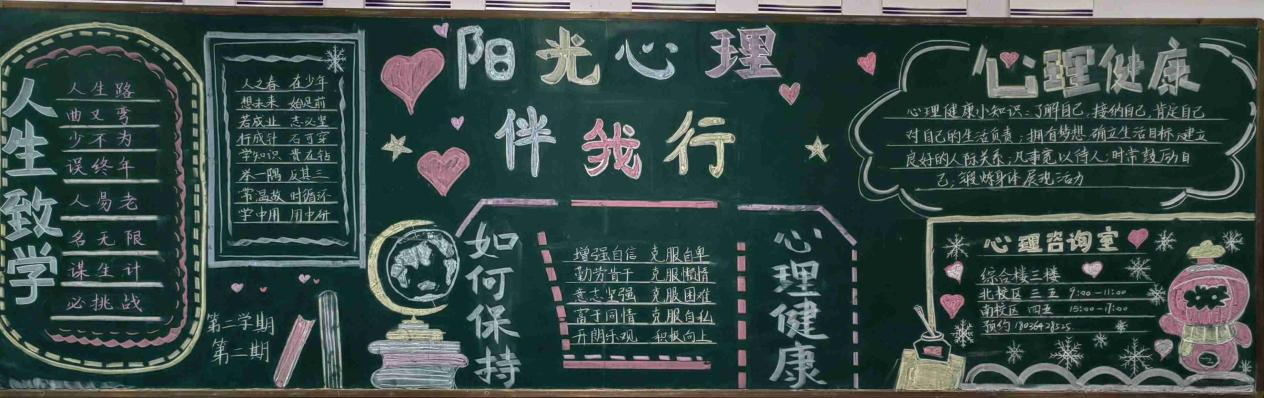 人生致学
人生路
曲又弯
少不为
误终年
人易老
名无限
谋生计
必挑战
人之春 在少年
想未来 始足前
若成业 志必坚
行成针 石可穿
学知识 贵在钻
举一隅 反其三
常温故 时循环
学中用 用中研
第二学期
第二期
阳光心理
伴我行
如何保持
增强自信 克服自卑
勤劳肯干 克服懒惰
意志坚强 克服困难
富于同情 克服自私
开朗乐观 积极向上
心理健康
心理健康
心理健康小知识:了解自己,接纳自己,肯定自己
对自己的生活负责;拥有梦想,确立生活目标,建立
良好的人际关系,凡事宽以待人,时常鼓励自
己,锻炼身体展现活力
心理咨询室
综合楼三楼
北校区 三 五 9:00-11:00
南校区 四 五 15:00-17:00
预约